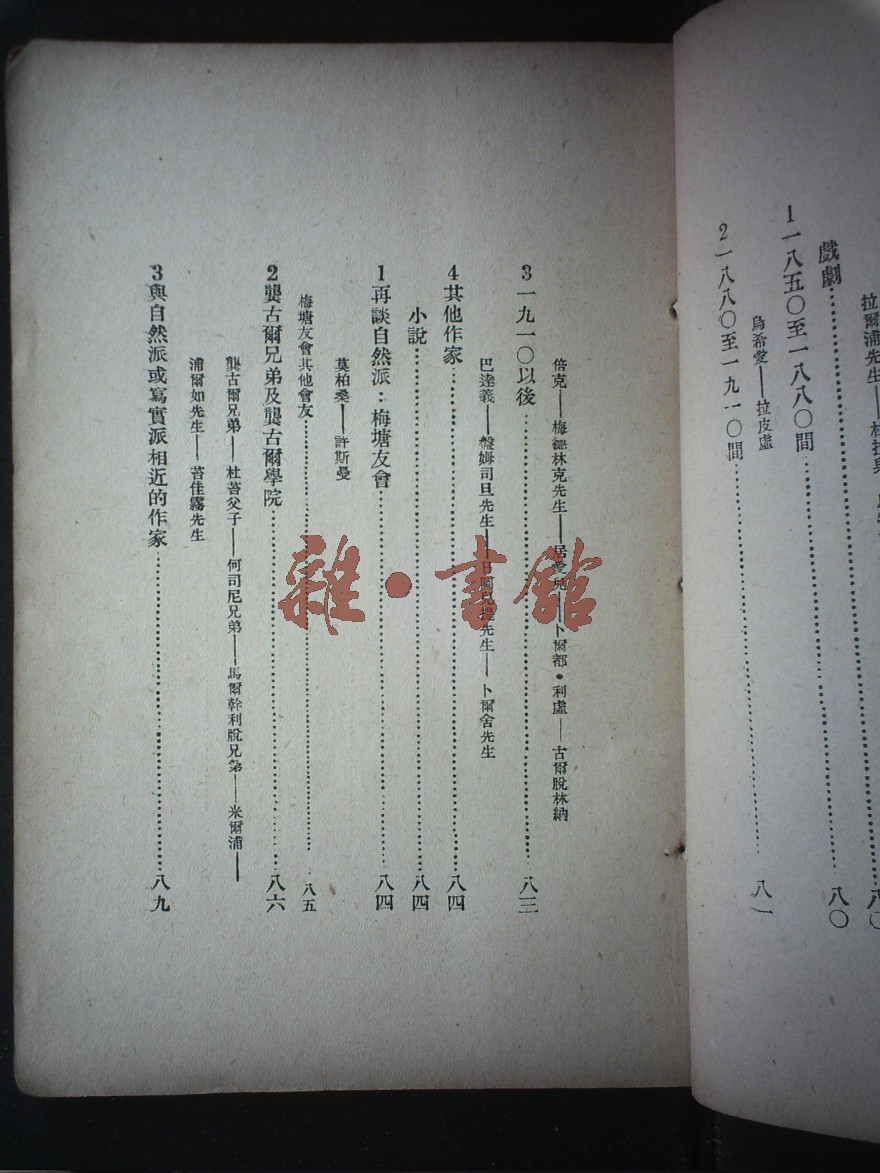 拉爾浦先生——
戲劇……八〇
1一八五〇至一八八〇間……八〇
烏希愛——拉皮虛
2一八八〇至一九一〇間……八一
倍克——梅德林克先生——居愛兒——卜爾都·利虛——古爾脫林納
3一九一〇以後……八三
巴達義——盤姆司旦先生——日阿兒提先生——卜爾舍先生
4其他作家……八四
小說……八四
1再談自然派：梅塘友會……八四
莫柏桑——許斯曼
梅塘友會其他會友……八五
2龔古爾兄弟及龔古爾學院……八六
龔古爾兄弟——杜苔父子——何司尼兄弟——馬爾幹利脫兄弟——米爾浦——
浦爾如先生——苔佳霧先生
3與自然派或寫實派相近的作家……八九
雜·書館